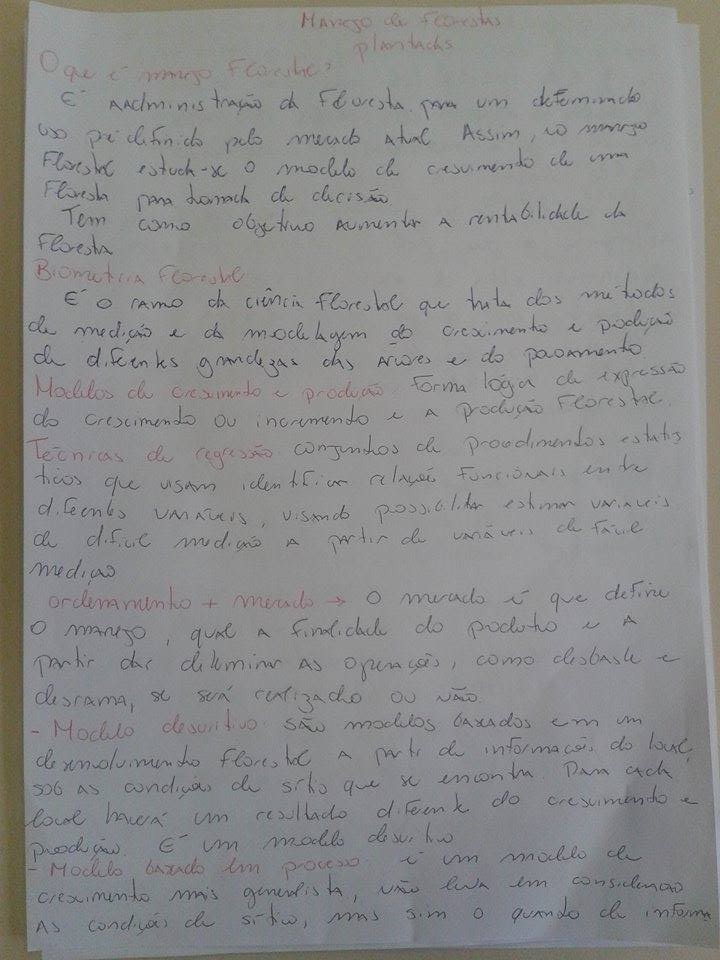 Manejo de Florestas
plantadas
O que é manejo Florestal?
É AAdministração da Floresta para um determinado
uso pré definido pelo mercado atual Assim, no manejo
Florestal estuda-se o modelo de crescimento de uma
Floresta para tomada de decisão.
Tem como objetivo aumentar a rentabilidade da
Floresta
Biometria Florestal
É o ramo da ciência florestal que trata dos métodos
de medição e da modelagem do crescimento e produção
de diferentes grandezas das Árvores e do povoamento
Modelos de crescimento e produção Forma lógica de expressão
do crescimento ou incremento e a produção Florestal.
Técnicas de regressão conjuntos de procedimentos estatis
ticos que visam identificar relação funcionais entre
diferentes variáveis, visando possibilitar estimar variáveis
de difícil medição a partir de variáveis de fácil
medição
ordenamento + mercado → O mercado é que define
o manejo, qual a finalidade do produto e a
partir daí determinar as operações, como desbaste e
desrama, se será realizado ou não.
- Modelo descritivo são modelos baxados em um
desenvolvimento florestal a partir de informações do local,
sob as condições de sítio que se encontra. Para cada
local haverá um resultado diferente do crescimento e
produção. É um modelo descritivo
- Modelo baxado em processo é um modelo de
crescimento mais generalista, não leva em consideração
as condições de sítio, mas sim o quando de informa